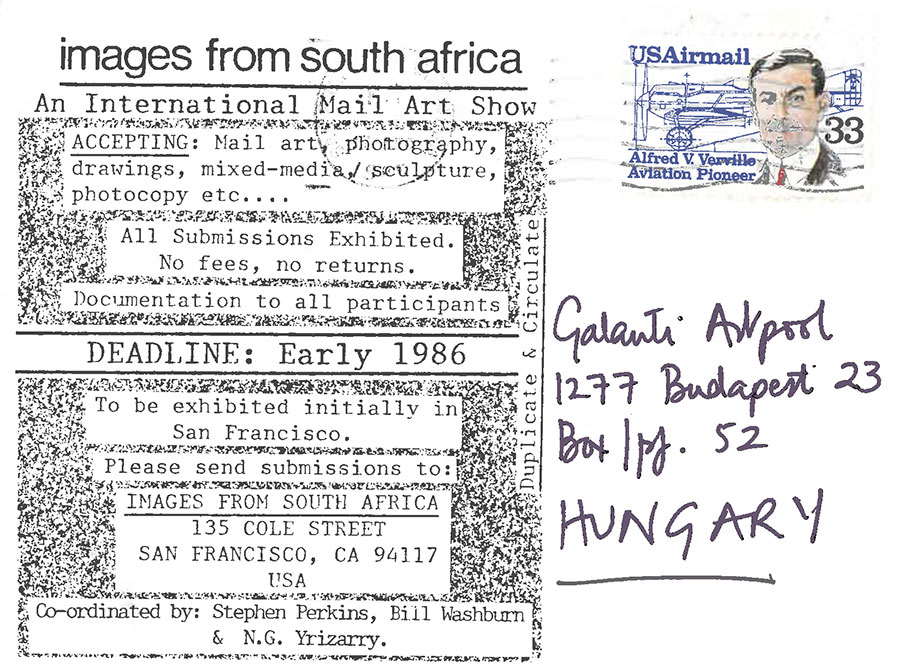 images from south africa
An International Mail Art Show
ACCEPTING: Mail art, photography,
drawings, mixed-media, sculpture,
photocopy etc....
All Submissions Exhibited.
No fees, no returns.
Documentation to all participants
DEADLINE: Early 1986
To be exhibited initially in
San Francisco.
Please send submissions to:
IMAGES FROM SOUTH AFRICA
135 COLE STREET
SAN FRANCISCO, CA 94117
USA
Co-ordinated by: Stephen Perkins, Bill Washburn
& N.G. Yrizarry.
Duplicate & Circulate
USAirmail
33
Alfred V. Verville
Aviation Pioneer
Galanti Artpool
1277 Budapest 23
Box/pf. 52
HUNGARY